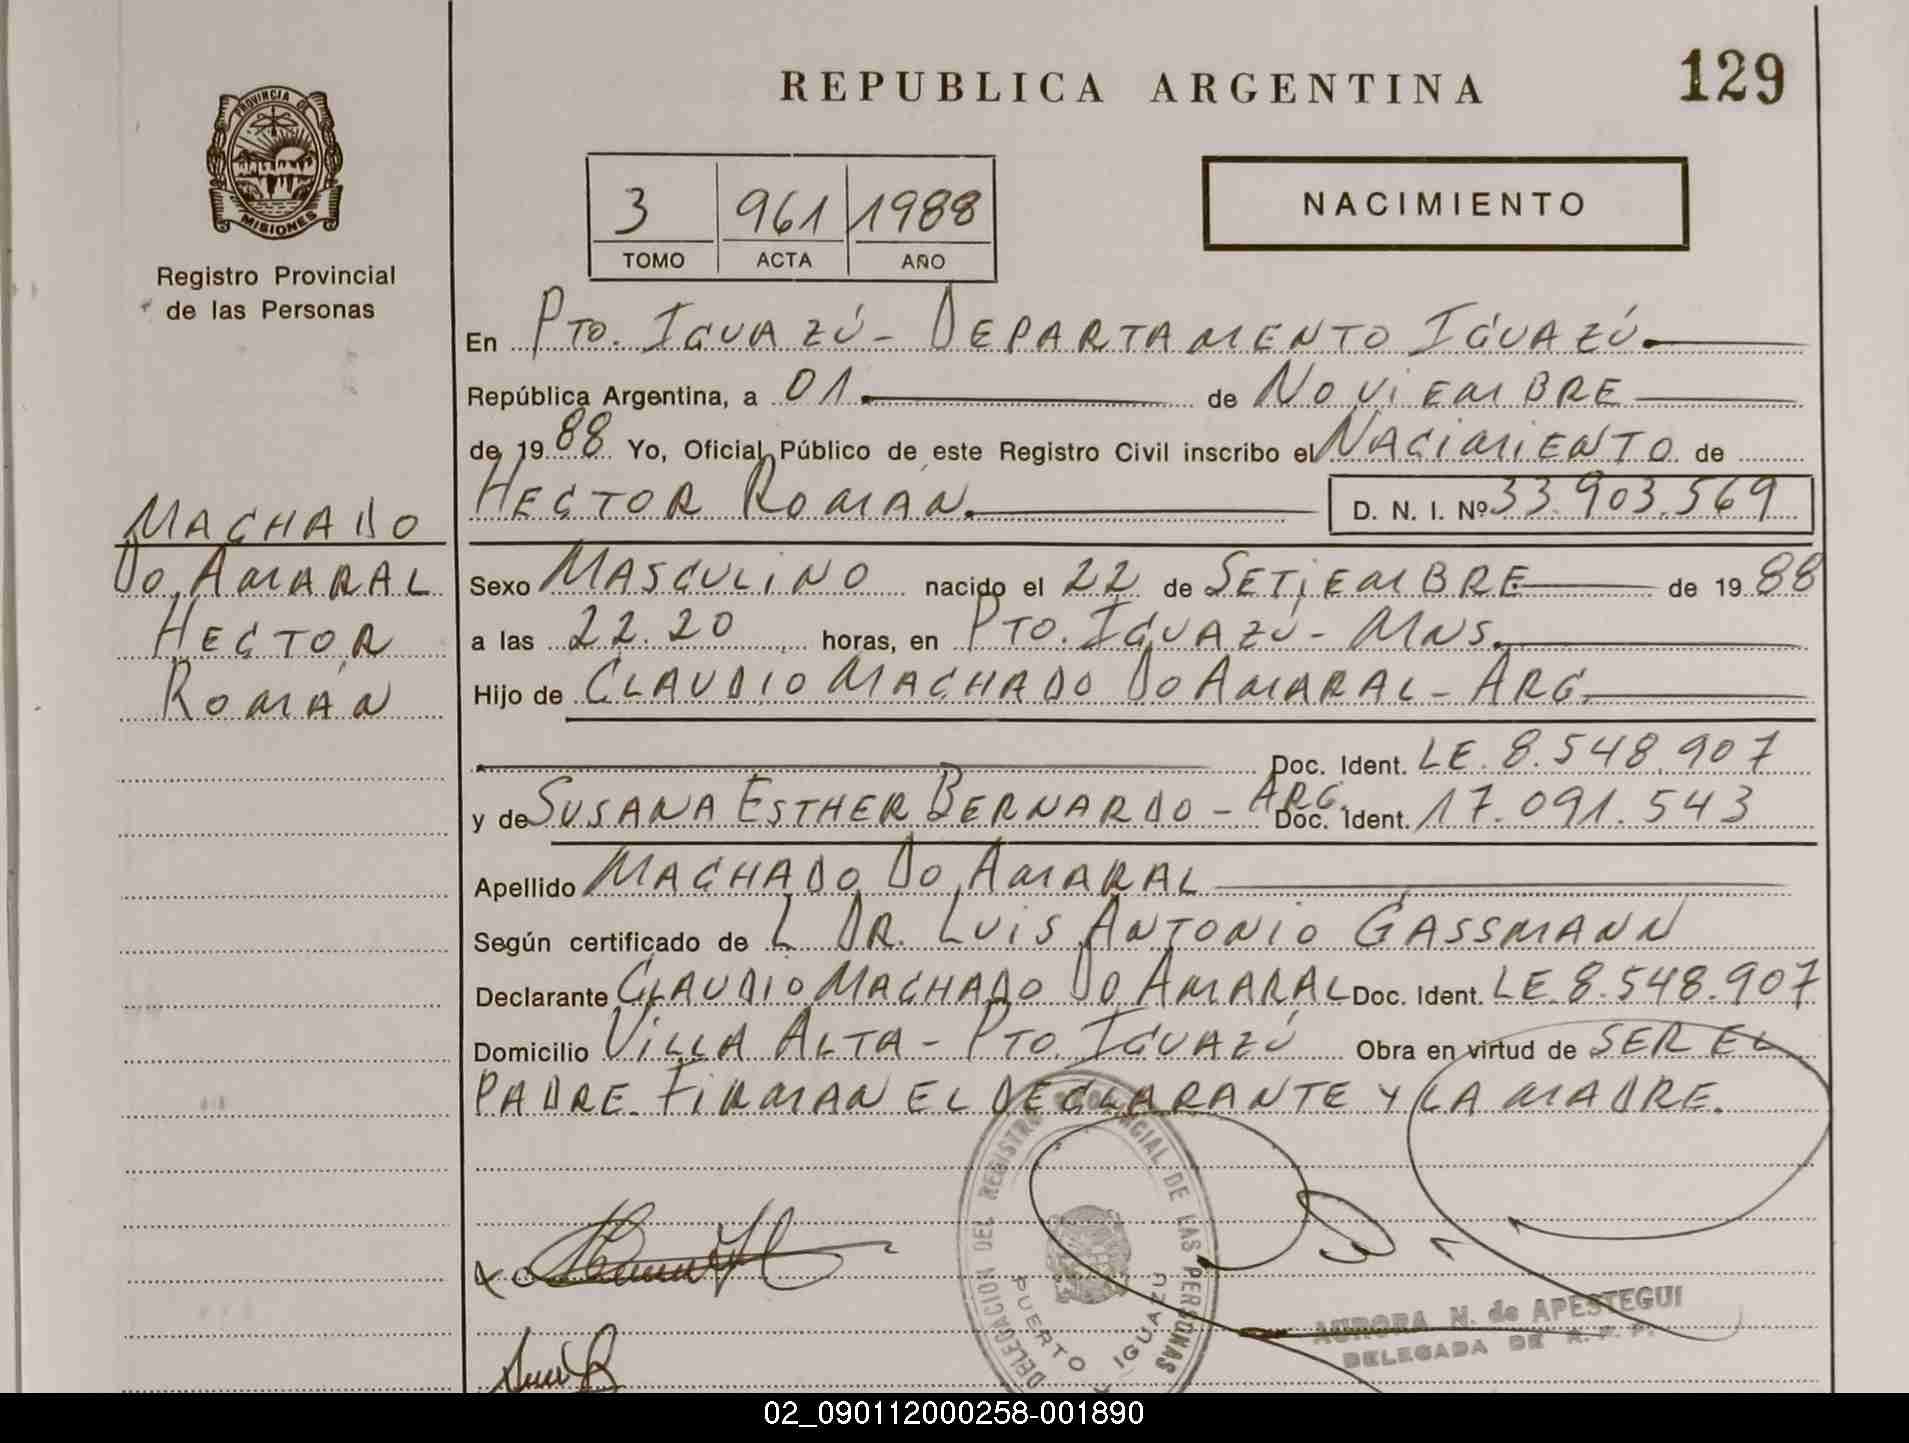 REPUBLICA ARGENTINA
129
PROVINCIA DE
MISIONES
Registro Provincial
de las Personas
3 961 1988
TOMO ACTA AÑO
NACIMIENTO
En PTO. IGUAZÚ - DEPARTAMENTO IGUAZÚ.
República Argentina, a 01. de NOVIEMBRE
de 1988 Yo, Oficial Público de este Registro Civil inscribo el NACIMIENTO de
HECTOR ROMÁN. D. N. I. Nº 33.903.569
MACHADO
DO AMARAL
HECTOR
ROMÁN
Sexo MASCULINO nacido el 22 de SETIEMBRE de 1988
a las 22.20 horas, en PTO. IGUAZÚ - MNS.
Hijo de CLAUDIO MACHADO DO AMARAL - ARG.
Doc. Ident. LE. 8.548.907
y de SUSANA ESTHER BERNARDO - ARG. Doc. Ident. 17.091.543
Apellido MACHADO DO AMARAL
Según certificado de L DR. LUIS ANTONIO GASSMANN
Declarante CLAUDIO MACHADO DO AMARAL Doc. Ident. LE. 8.548.907
Domicilio VILLA ALTA - PTO. IGUAZÚ Obra en virtud de SER EL
PADRE. FIRMAN EL DECLARANTE Y LA MADRE.
DELEGACION DEL REGISTRO PROVINCIAL DE LAS PERSONAS
PUERTO IGUAZU
AURORA N. de APESTEGUI
DELEGADA DE R. P. P.
02_090112000258-001890